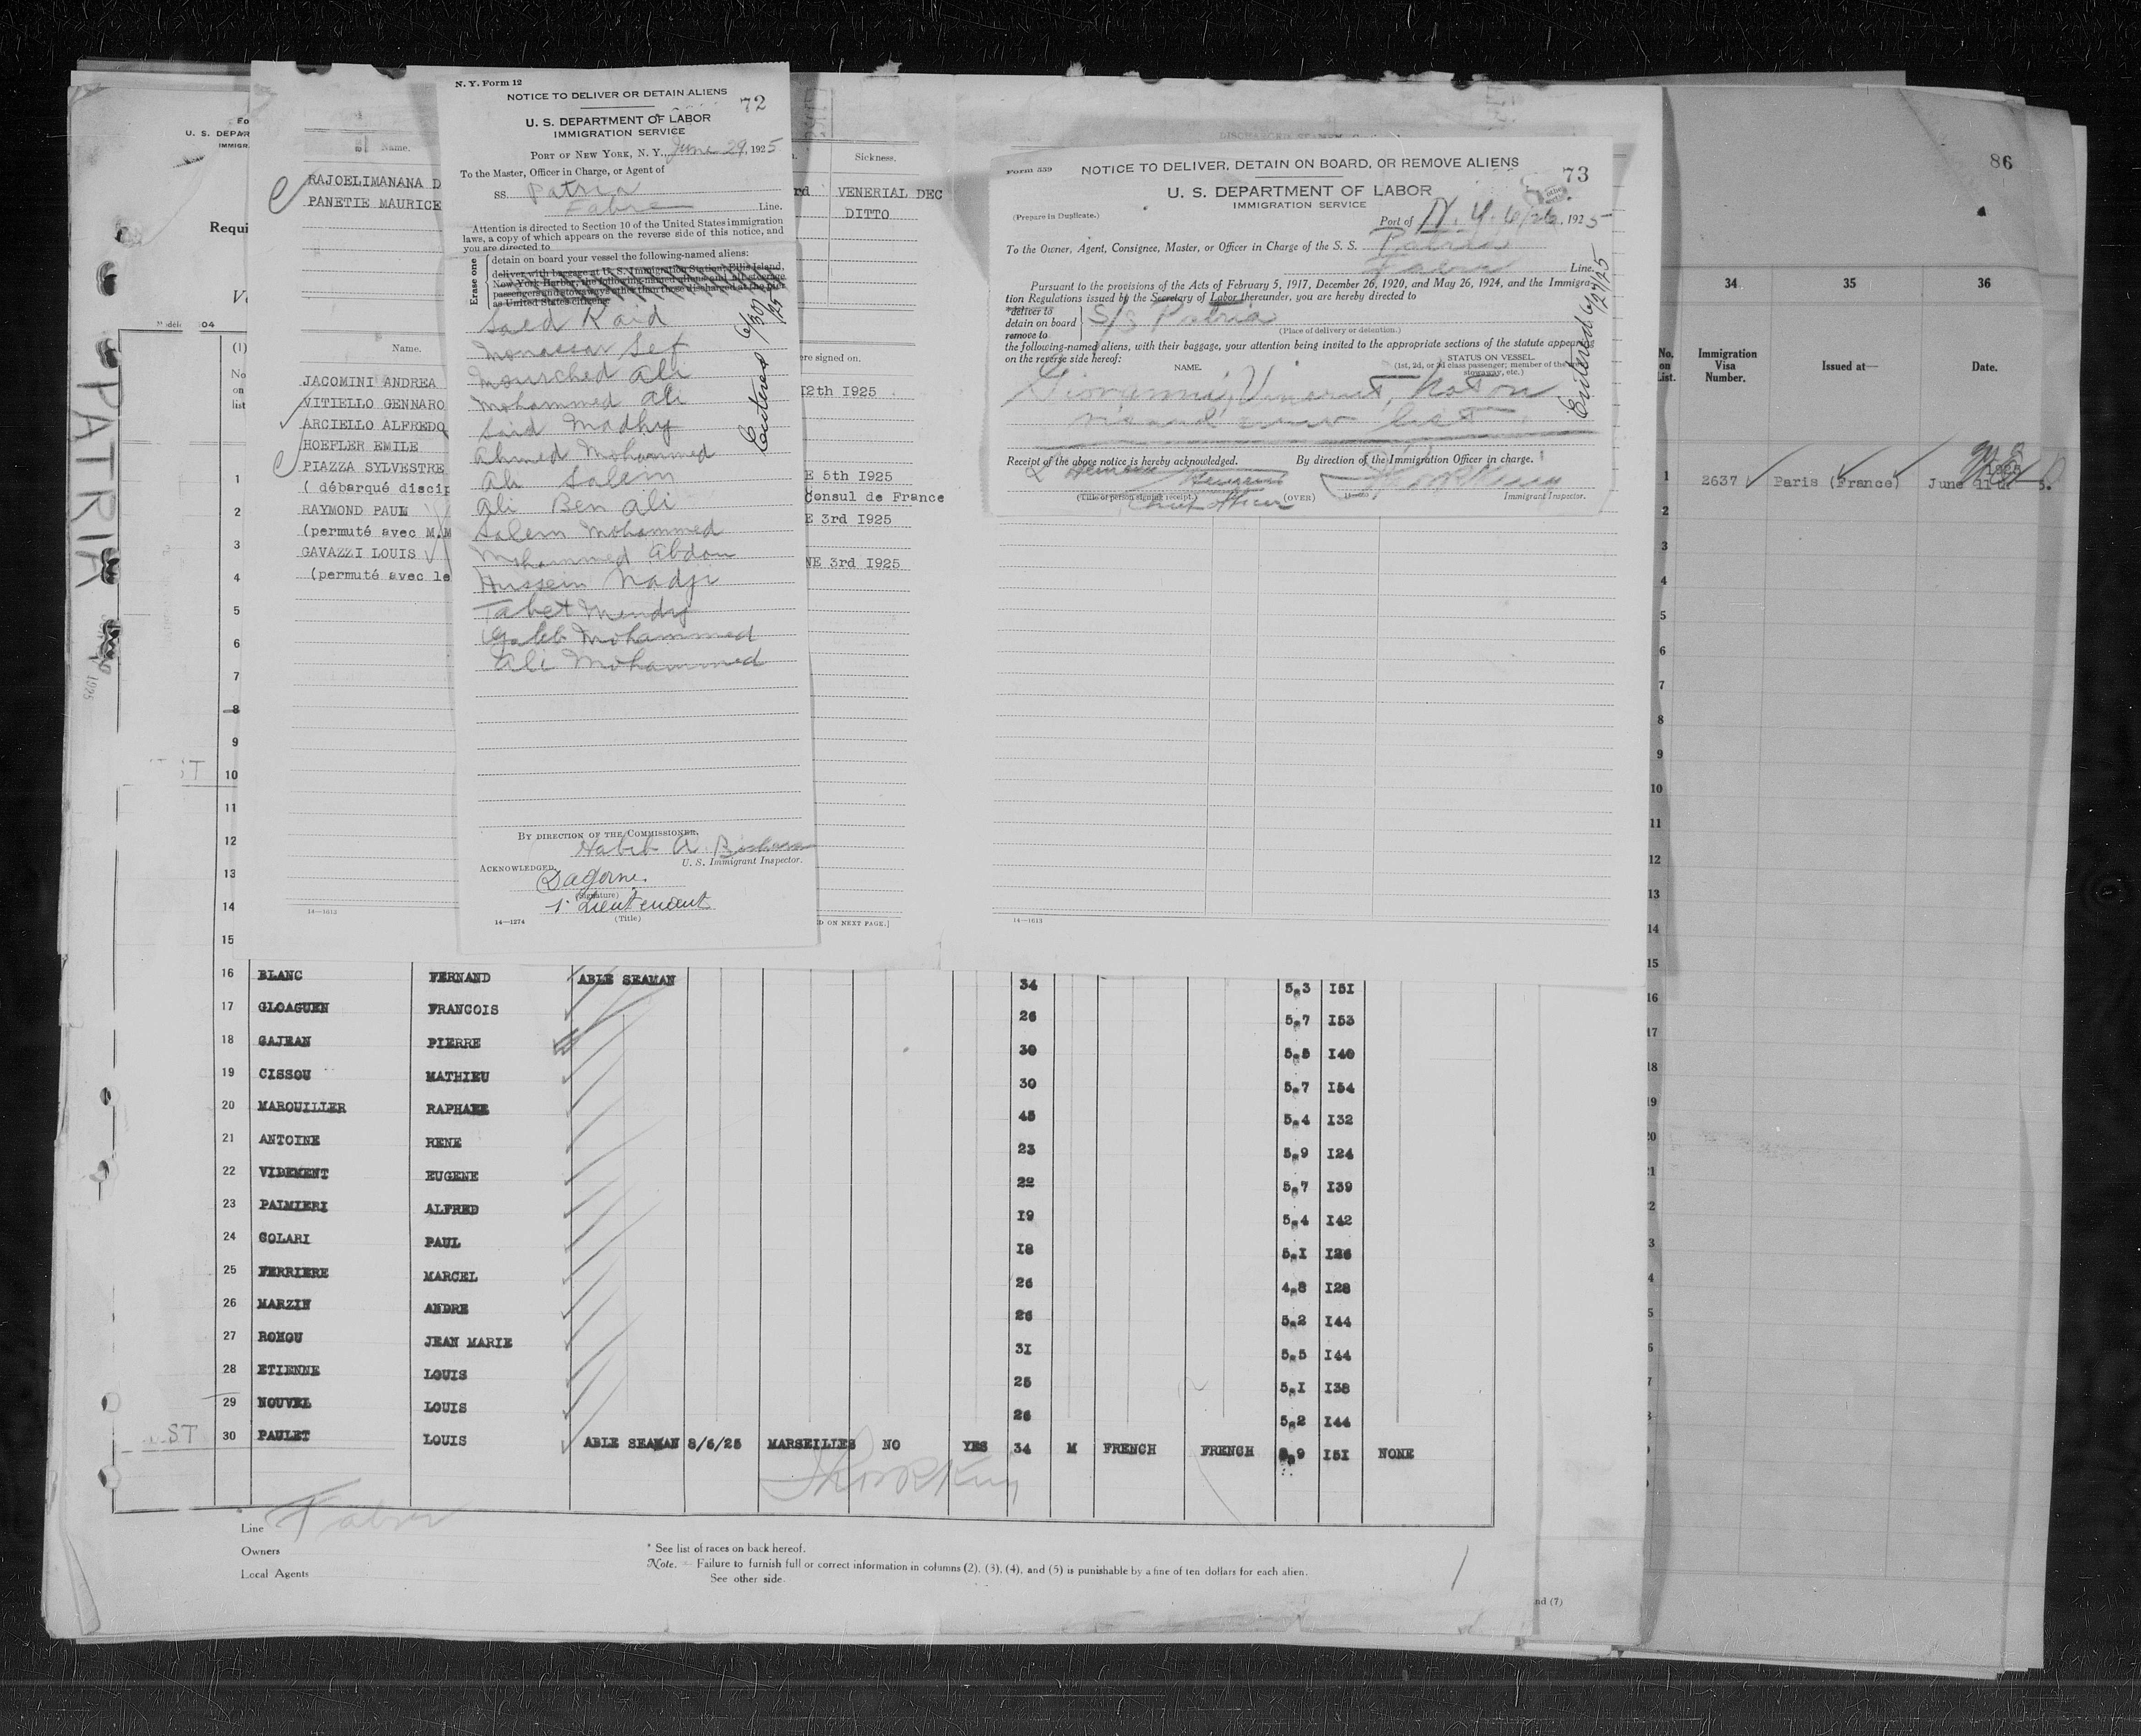 N. Y. Form 12
NOTICE TO DELIVER OR DETAIN ALIENS
72
U. S. DEPARTMENT OF LABOR
IMMIGRATION SERVICE
PORT OF NEW YORK, N. Y., June 29, 1925
To the Master, Officer in Charge, or Agent of
SS. Patria
Fabre Line.
Attention is directed to Section 10 of the United States immigration
laws, a copy of which appears on the reverse side of this notice, and
you are directed to
Erase one
detain on board your vessel the following-named aliens:
deliver with baggage at U. S. Immigration Station, Ellis Island,
New York Harbor, the following-named aliens and all steerage
passengers and stowaways other than those discharged at the pier
as United States citizens:
Saed Kaid
Monassar Sef
Mourched Ali
Mohammed Ali
Said Madhy
Ahmed Mohammed
Ali Salem
Ali Ben Ali
Salem Mohammed
Mohammed Abdou
Hussein Nadji
Tabet Mendy
Galeb Mohammed
Ali Mohammed
Entered 6/30/25
BY DIRECTION OF THE COMMISSIONER,
Habib A.
U. S. Immigrant Inspector.
ACKNOWLEDGED,
Dagorne.
(Signature)
1. Lieutenant
(Title)
14—1274
Form 559
NOTICE TO DELIVER, DETAIN ON BOARD, OR REMOVE ALIENS
73
U. S. DEPARTMENT OF LABOR
IMMIGRATION SERVICE
(Prepare in Duplicate.)
Port of N. Y. 6/26, 1925
To the Owner, Agent, Consignee, Master, or Officer in Charge of the S. S. Patria
Fabre Line.
Pursuant to the provisions of the Acts of February 5, 1917, December 26, 1920, and May 26, 1924, and the Immigra-
tion Regulations issued by the Secretary of Labor thereunder, you are hereby directed to
*deliver to
detain on board
remove to
S/S Patria
(Place of delivery or detention.)
the following-named aliens, with their baggage, your attention being invited to the appropriate sections of the statute appearing
on the reverse side hereof:
NAME.
STATUS ON VESSEL
(1st, 2d, or 3d class passenger; member of the crew,
stowaway, etc.)
Giovanni, Vincent, not on
visaed crew list.
Entered 6/27/25
Receipt of the above notice is hereby acknowledged.
By direction of the Immigration Officer in charge.
(Title of person signing receipt.)
Chief Officer
(OVER)
Immigrant Inspector.
Name.
Sickness.
RAJOELIMANANA D
VENERIAL DEC
PANETIE MAURICE
DITTO
Name.
ere signed on.
JACOMINI ANDREA
VITIELLO GENNARO
I2th I925
ARCIELLO ALFREDO
HOEFLER EMILE
PIAZZA SYLVESTRE
E 5th I925
( débarqué discip
Consul de France
RAYMOND PAUL
E 3rd I925
(permuté avec M.M
GAVAZZI LOUIS
NE 3rd I925
(permuté avec le
14—1613
D ON NEXT PAGE.]
14—1613
PATRIA
1925
Fo
U. S. DEPAR
IMMIGR
Requi
(1)
No
on
list
1
2
3
4
5
6
7
8
9
10
11
12
13
14
15
16 BLANC FERNAND ABLE SEAMAN 34 5,3 I5I
17 GLOAGUEN FRANCOIS 26 5,7 I53
18 GAJEAN PIERRE 30 5,5 I40
19 CISSOU MATHIEU 30 5,7 I54
20 MAROUILLER RAPHAEL 45 5,4 I32
21 ANTOINE RENE 23 5,9 I24
22 VIDEMENT EUGENE 22 5,7 I39
23 PALMIERI ALFRED I9 5,4 I42
24 COLARI PAUL I8 5,I I26
25 FERRIERE MARCEL 26 4,8 I28
26 MARZIN ANDRE 26 5,2 I44
27 ROHOU JEAN MARIE 3I 5,5 I44
28 ETIENNE LOUIS 25 5,I I38
29 NOUVEL LOUIS 26 5,2 I44
30 PAULET LOUIS ABLE SEAMAN 8/6/25 MARSEILLES NO YES 34 M FRENCH FRENCH 9 I5I NONE
Line Fabre
Owners
Local Agents
* See list of races on back hereof.
Note. — Failure to furnish full or correct information in columns (2), (3), (4), and (5) is punishable by a fine of ten dollars for each alien.
See other side.
nd (7)
86
34 35 36
No. on List.
Immigration Visa Number.
Issued at—
Date.
1 2637 Paris (France) June 11th 1925.
2
3
4
5
6
7
8
9
10
11
12
13
14
15
16
17
18
19
20
21